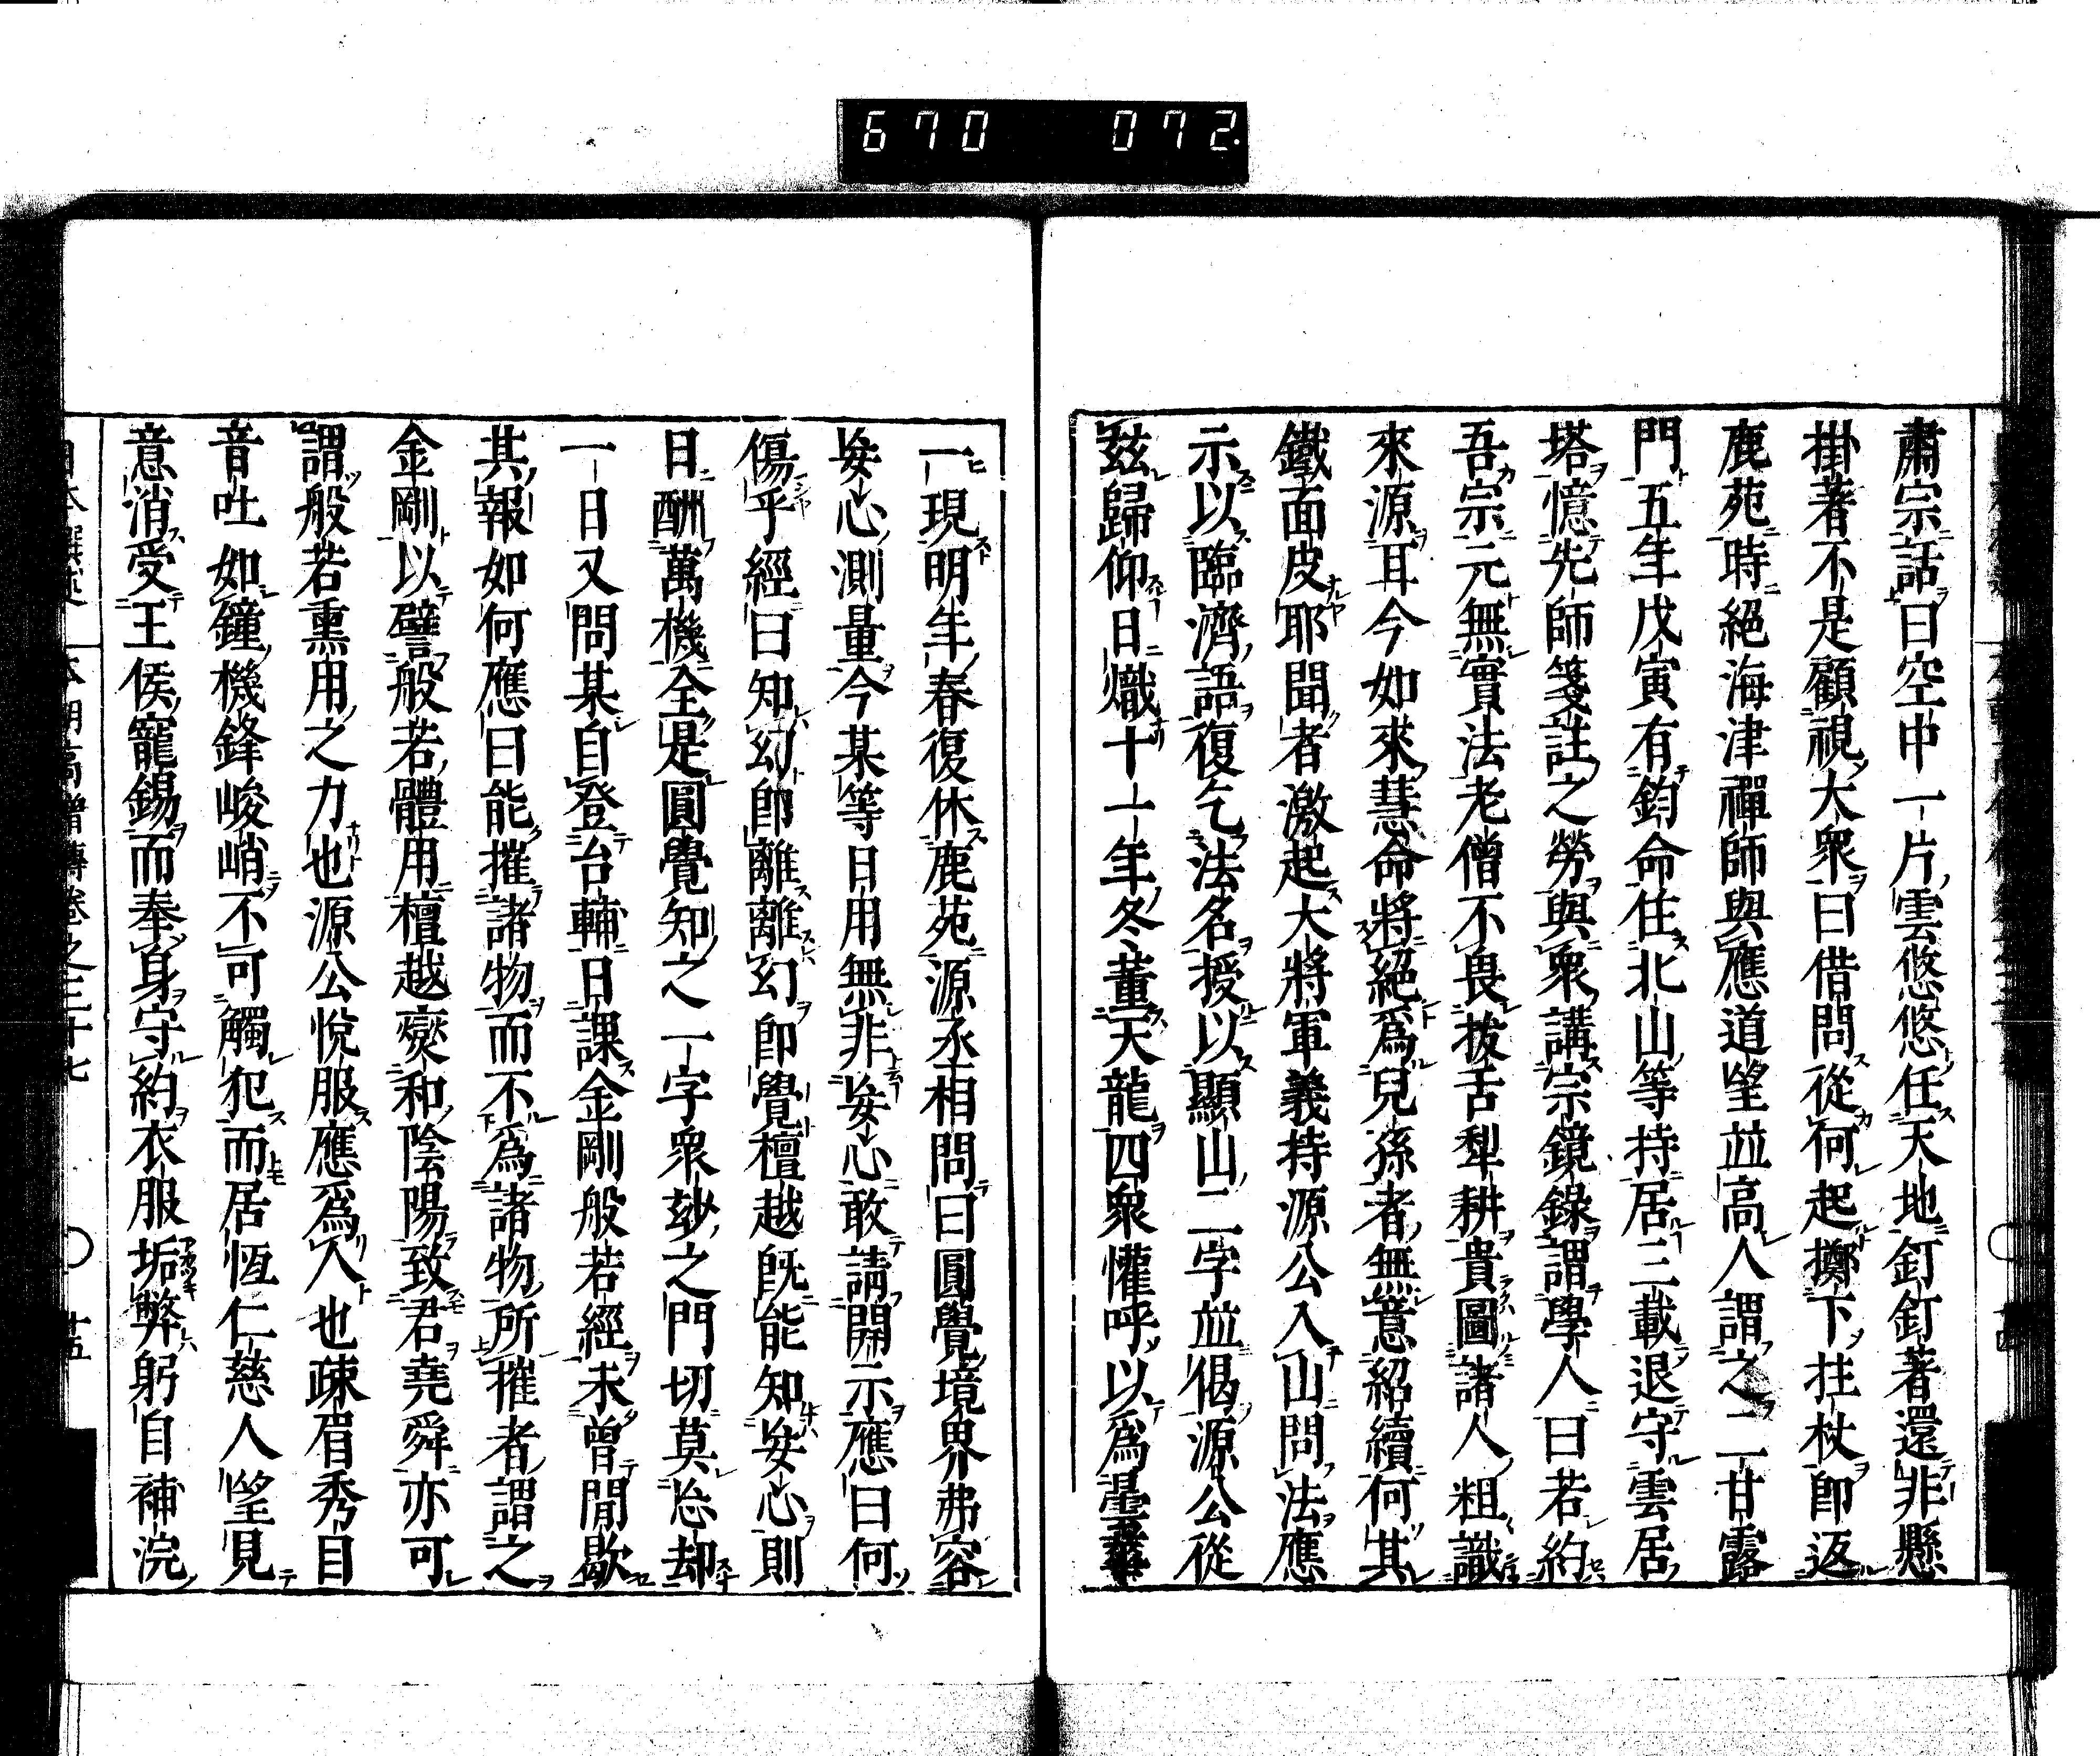 670 072.
肅宗話曰空中一片雲悠悠任天地釘釘著還非懸
掛著不是顧視大衆曰借問從何起擲下拄杖卽返
鹿苑時絕海津禪師與應道望並高人謂之二甘露
門五年戊寅有鈞命住北山等持居三載退守雲居
塔憶先師箋註之勞與衆講宗鏡錄謂學人曰若約
吾宗元無實法老僧不畏拔舌犁耕貴圖諸人粗識
來源耳今如來慧命將絕爲兒孫者無意紹續何其
鐵面皮耶聞者激起大將軍義持源公入山問法應
示以臨濟語復乞法名授以顯山二字並偈源公從
玆歸仰日熾十一年冬董天龍四衆懽呼以爲曇華
一現明年春復休鹿苑源丞相問曰圓覺境界弗容
妄心測量今某等日用無非妄心敢請開示應曰何
傷乎經曰知幻卽離離幻卽覺檀越旣能知妄心則
日酬萬機全是圓覺知之一字衆玅之門切莫忩却
一日又問某自登台輔日課金剛般若經未曾閒歇
其報如何應曰能摧諸物而不爲諸物所摧者謂之
金剛以譬般若體用檀越燮和陰陽致君堯舜亦可
謂般若熏用之力也源公悅服應爲人也疎眉秀目
音吐如鐘機鋒峻峭不可觸犯而居恆仁慈人望見
意消受王侯寵錫而奉身守約衣服垢弊躬自補浣
本朝高僧傳卷之三十七 十五